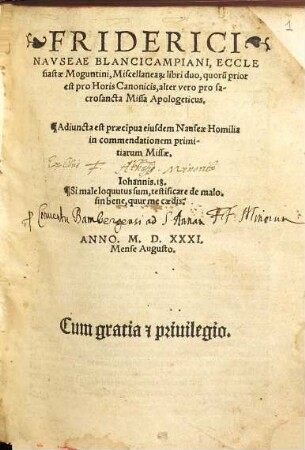 1
FRIDERICI
NAVSEAE BLANCICAMPIANI, ECCLE
siastæ Moguntini, Miscellaneaꝝ libri duo, quorũ prior
est pro Horis Canonicis, alter vero pro sa
crosancta Missa Apologeticus.
¶Adiuncta est præcipua eiusdem Nauseæ Homilia
in commendationem primi
tiarum Missæ.
Iohannis. 18.
¶Si male loquutus sum, testificare de malo.
sin bene, quur me cædis?
Conventus Bambergensis ad S. Annam FF. Minorum
ANNO. M. D. XXXI.
Mense Augusto.
Cum gratia ⁊ priuilegio.